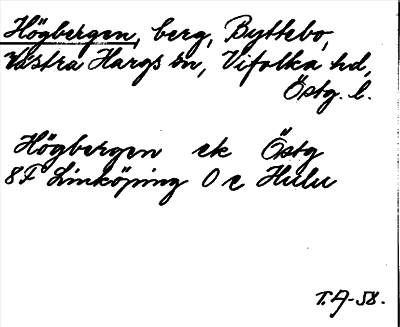 Högbergen, berg, Byttebo,
Västra Hargs sn, Vifolka hd,
Östg. l.
Högbergen ek Östg
8F Linköping O c Hulu
T.A-58.